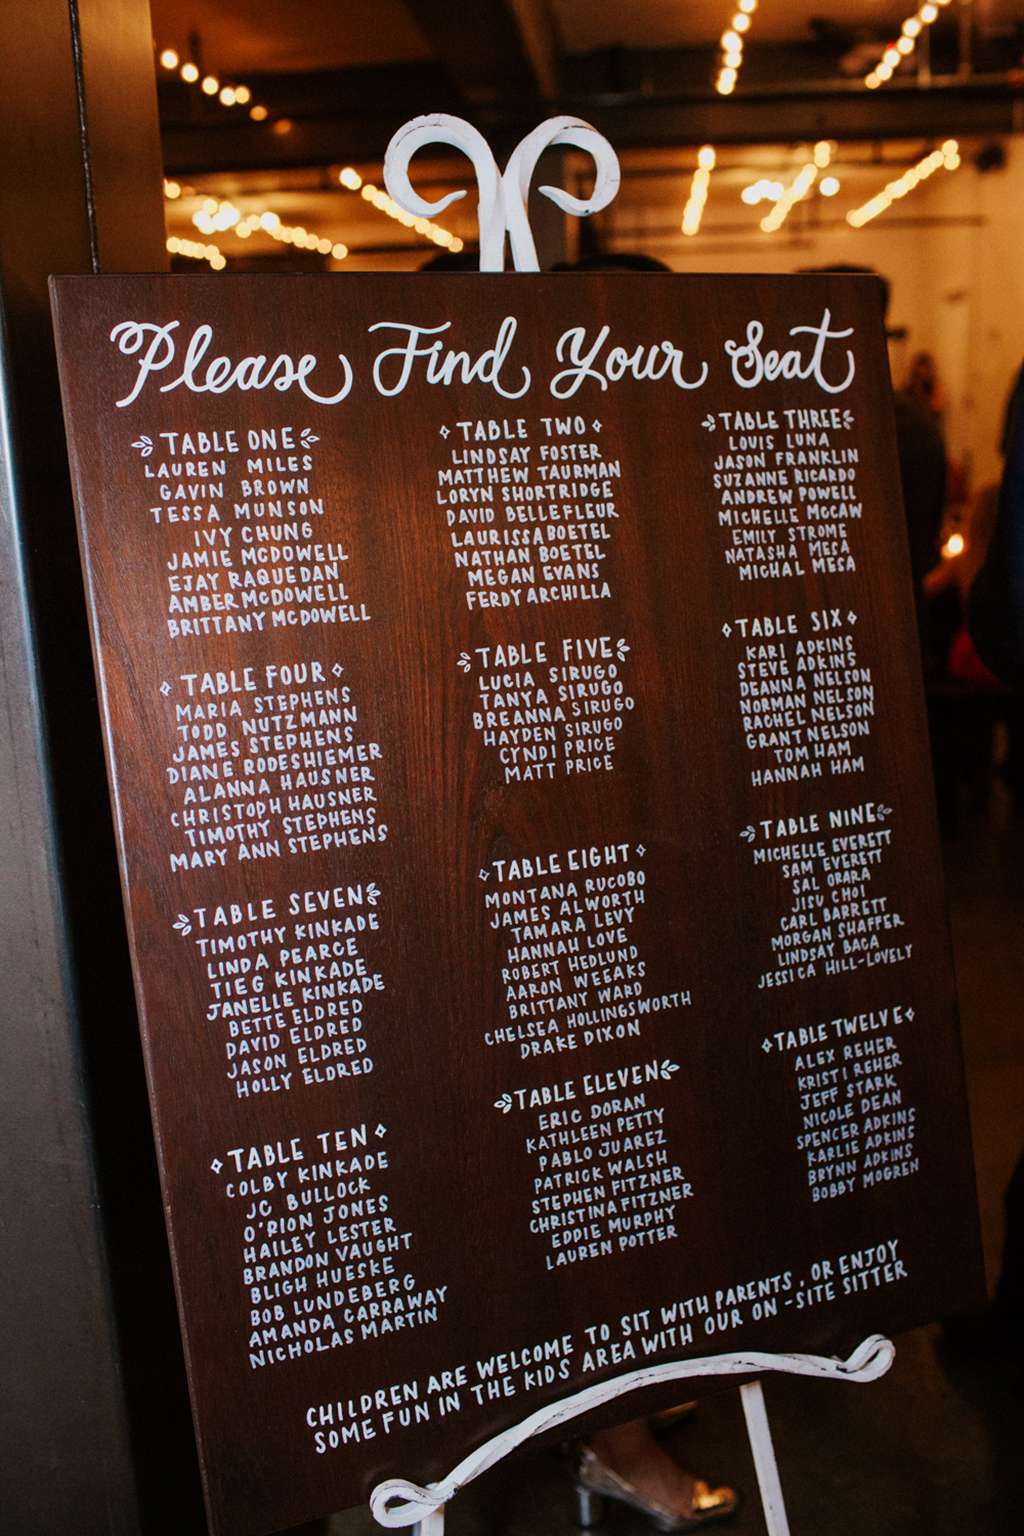 Please Find Your Seat
TABLE ONE
LAUREN MILES
GAVIN BROWN
TESSA MUNSON
IVY CHUNG
JAMIE MCDOWELL
EJAY RAQUEDAN
AMBER MCDOWELL
BRITTANY MCDOWELL
TABLE TWO
LINDSAY FOSTER
MATTHEW TAURMAN
LORYN SHORTRIDGE
DAVID BELLEFLEUR
LAURISSA BOETEL
NATHAN BOETEL
MEGAN EVANS
FERDY ARCHILLA
TABLE THREE
LOUIS LUNA
JASON FRANKLIN
SUZANNE RICARDO
ANDREW POWELL
MICHELLE MCCAW
EMILY STROME
NATASHA MECA
MICHAL MECA
TABLE FOUR
MARIA STEPHENS
TODD NUTZMANN
JAMES STEPHENS
DIANE RODESHIEMER
ALANNA HAUSNER
CHRISTOPH HAUSNER
TIMOTHY STEPHENS
MARY ANN STEPHENS
TABLE FIVE
LUCIA SIRUGO
TANYA SIRUGO
BREANNA SIRUGO
HAYDEN SIRUGO
CYNDI PRICE
MATT PRICE
TABLE SIX
KARI ADKINS
STEVE ADKINS
DEANNA NELSON
NORMAN NELSON
RACHEL NELSON
GRANT NELSON
TOM HAM
HANNAH HAM
TABLE SEVEN
TIMOTHY KINKADE
LINDA PEARCE
TIEG KINKADE
JANELLE KINKADE
BETTE ELDRED
DAVID ELDRED
JASON ELDRED
HOLLY ELDRED
TABLE EIGHT
MONTANA RUCOBO
JAMES ALWORTH
TAMARA LEVY
HANNAH LOVE
ROBERT HEDLUND
AARON WEEAKS
BRITTANY WARD
CHELSEA HOLLINGSWORTH
DRAKE DIXON
TABLE NINE
MICHELLE EVERETT
SAM EVERETT
SAL OBARA
JISU CHOI
CARL BARRETT
MORGAN SHAFFER
LINDSAY BACA
JESSICA HILL-LOVELY
TABLE TEN
COLBY KINKADE
JC BULLOCK
O'RION JONES
HAILEY LESTER
BRANDON VAUGHT
BLIGH HUESKE
BOB LUNDEBERG
AMANDA CARRAWAY
NICHOLAS MARTIN
TABLE ELEVEN
ERIC DORAN
KATHLEEN PETTY
PABLO JUAREZ
PATRICK WALSH
STEPHEN FITZNER
CHRISTINA FITZNER
EDDIE MURPHY
LAUREN POTTER
TABLE TWELVE
ALEX REHER
KRISTI REHER
JEFF STARK
NICOLE DEAN
SPENCER ADKINS
KARLIE ADKINS
BRYNN ADKINS
BOBBY MOGREN
CHILDREN ARE WELCOME TO SIT WITH PARENTS, OR ENJOY
SOME FUN IN THE KIDS AREA WITH OUR ON-SITE SITTER